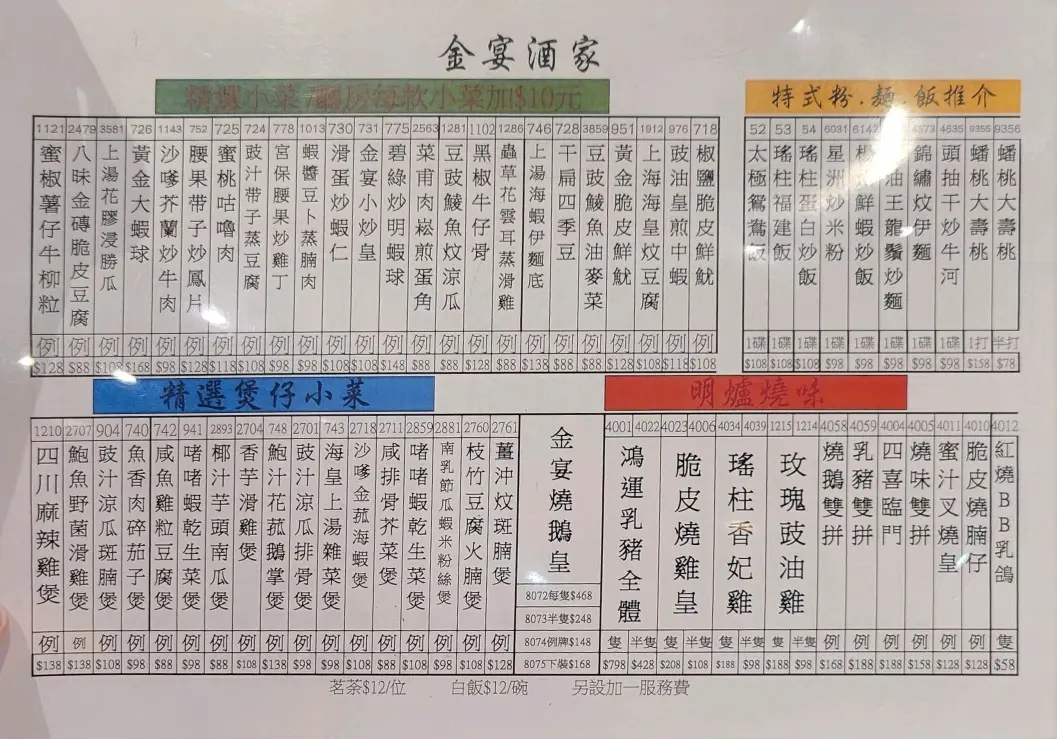 金宴酒家
精選小菜
房每款小菜加$10元
1121 2479 3581 726 1143 752 725 724 778 1013 730 731 775 2563 1281 1102 1286 746 728 3859 951 1912 976 718
蜜椒薯仔牛柳粒
八味金磚脆皮豆腐
上湯花膠浸勝瓜
黃金大蝦球
沙嗲芥蘭炒牛肉
腰果带子炒鳳片
蜜桃咕嚕肉
豉汁带子蒸豆腐
宮保腰果炒雞丁
蝦醬豆卜蒸腩肉
滑蛋炒蝦仁
金宴小炒皇
碧綠炒明蝦球
菜甫肉崧煎蛋角
豆豉鯪魚炆涼瓜
黑椒牛仔骨
蟲草花雲耳蒸滑雞
上湯海蝦伊麵底
干扁四季豆
豆豉鯪魚油麥菜
黃金脆皮鮮魷
上海海皇炆豆腐
豉油皇煎中蝦
椒鹽脆皮鮮魷
例 例 例 例 例 例 例 例 例 例 例 例 例 例 例 例 例 例 例 例 例 例 例 例
$128 $88 $108 $168 $98 $128 $118 $108 $98 $108 $98 $108 $148 $88 $88 $128 $88 $138 $88 $88 $128 $108 $118 $108
特式粉.麵.飯推介
52 53 54 6031 4635 9355 9356
太極鴛鴦飯
瑤柱福建飯
瑤柱蛋白炒飯
星洲炒米粉
鮮蝦炒飯
油王龍鬚炒麵
錦繡炆伊麵
頭抽干炒牛河
蟠桃大壽桃
蟠桃大壽桃
1碟 1碟 1碟 1碟 1碟 1碟 1碟 1碟 1打 半打
$108 $108 $108 $98 $98 $98 $98 $98 $158 $78
精選煲仔小菜
1210 2707 904 740 742 941 2893 2704 748 701 743 2718 2711 2859 2881 2760 2761
四川麻辣雞煲
鮑魚野菌滑雞煲
豉汁涼瓜斑腩煲
魚香肉碎茄子煲
咸魚雞粒豆腐煲
啫啫蝦乾生菜煲
椰汁芋頭南瓜煲
香芋滑雞煲
鮑汁花菰鵝掌煲
豉汁涼瓜排骨煲
海皇上湯雜菜煲
沙嗲金菰海蝦煲
咸排骨芥菜煲
啫啫蝦乾生菜煲
南乳節瓜蝦米粉絲煲
枝竹豆腐火腩煲
薑沖炆斑腩煲
例 例 例 例 例 例 例 例 例 例 例 例 例 例 例 例 例
$138 $138 $108 $98 $88 $98 $88 $108 $138 $98 $98 $108 $88 $108 $98 $108 $128
金宴燒鵝皇
8072每隻$468
8073半隻$248
8074例牌$148
8075下裝$168
明爐燒味
4001 4022 4023 4006 4034 4039 1215 1214 4058 4059 4004 4005 4011 4010 4012
鴻運乳豬全體
脆皮燒雞皇
瑤柱香妃雞
玫瑰豉油雞
燒鵝雙拼
乳豬雙拼
四喜臨門
燒味雙拼
蜜汁叉燒皇
脆皮燒腩仔
紅燒BB乳鴿
隻 半隻 隻 半隻 隻 半隻 隻 半隻 例 例 例 例 例 例 隻
$798 $428 $208 $108 $188 $98 $188 $98 $168 $188 $188 $158 $128 $128 $58
茗茶$12/位 白飯$12/碗 另設加一服務費